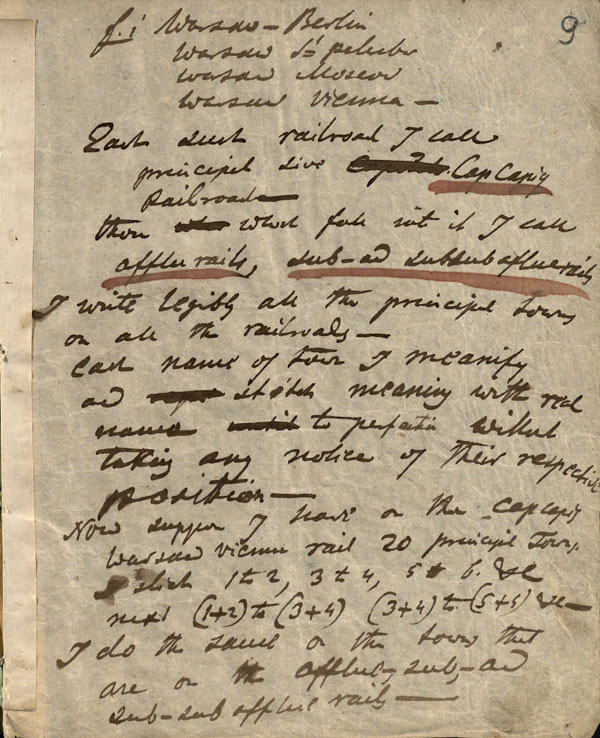 9
f.i Warsaw – Berlin
Warsaw St petersb
Warsaw Moscow
Warsaw Vienna –
Each such railroad I call
principal live CapCapig
Railroads
those which fall int it I call
afflu rails, sub- ad subsubafluerails
I write legibly all the principal towns
on all the railroads –
Each name of town I meanify
ad stitch meaning with real
name to perfectn without
taking any notice of their respective
position –
Now suppose I have on the capcapig
Warsaw Vienna rail 20 principal Towns.
I stich 1 t 2, 3 t 4, 5 t 6. &c
next (1+2) t (3+4) (3+4) t (5+6) &c –
I do the same on the towns that
are on the afflue-, sub-, ad
sub-sub afflue rails –